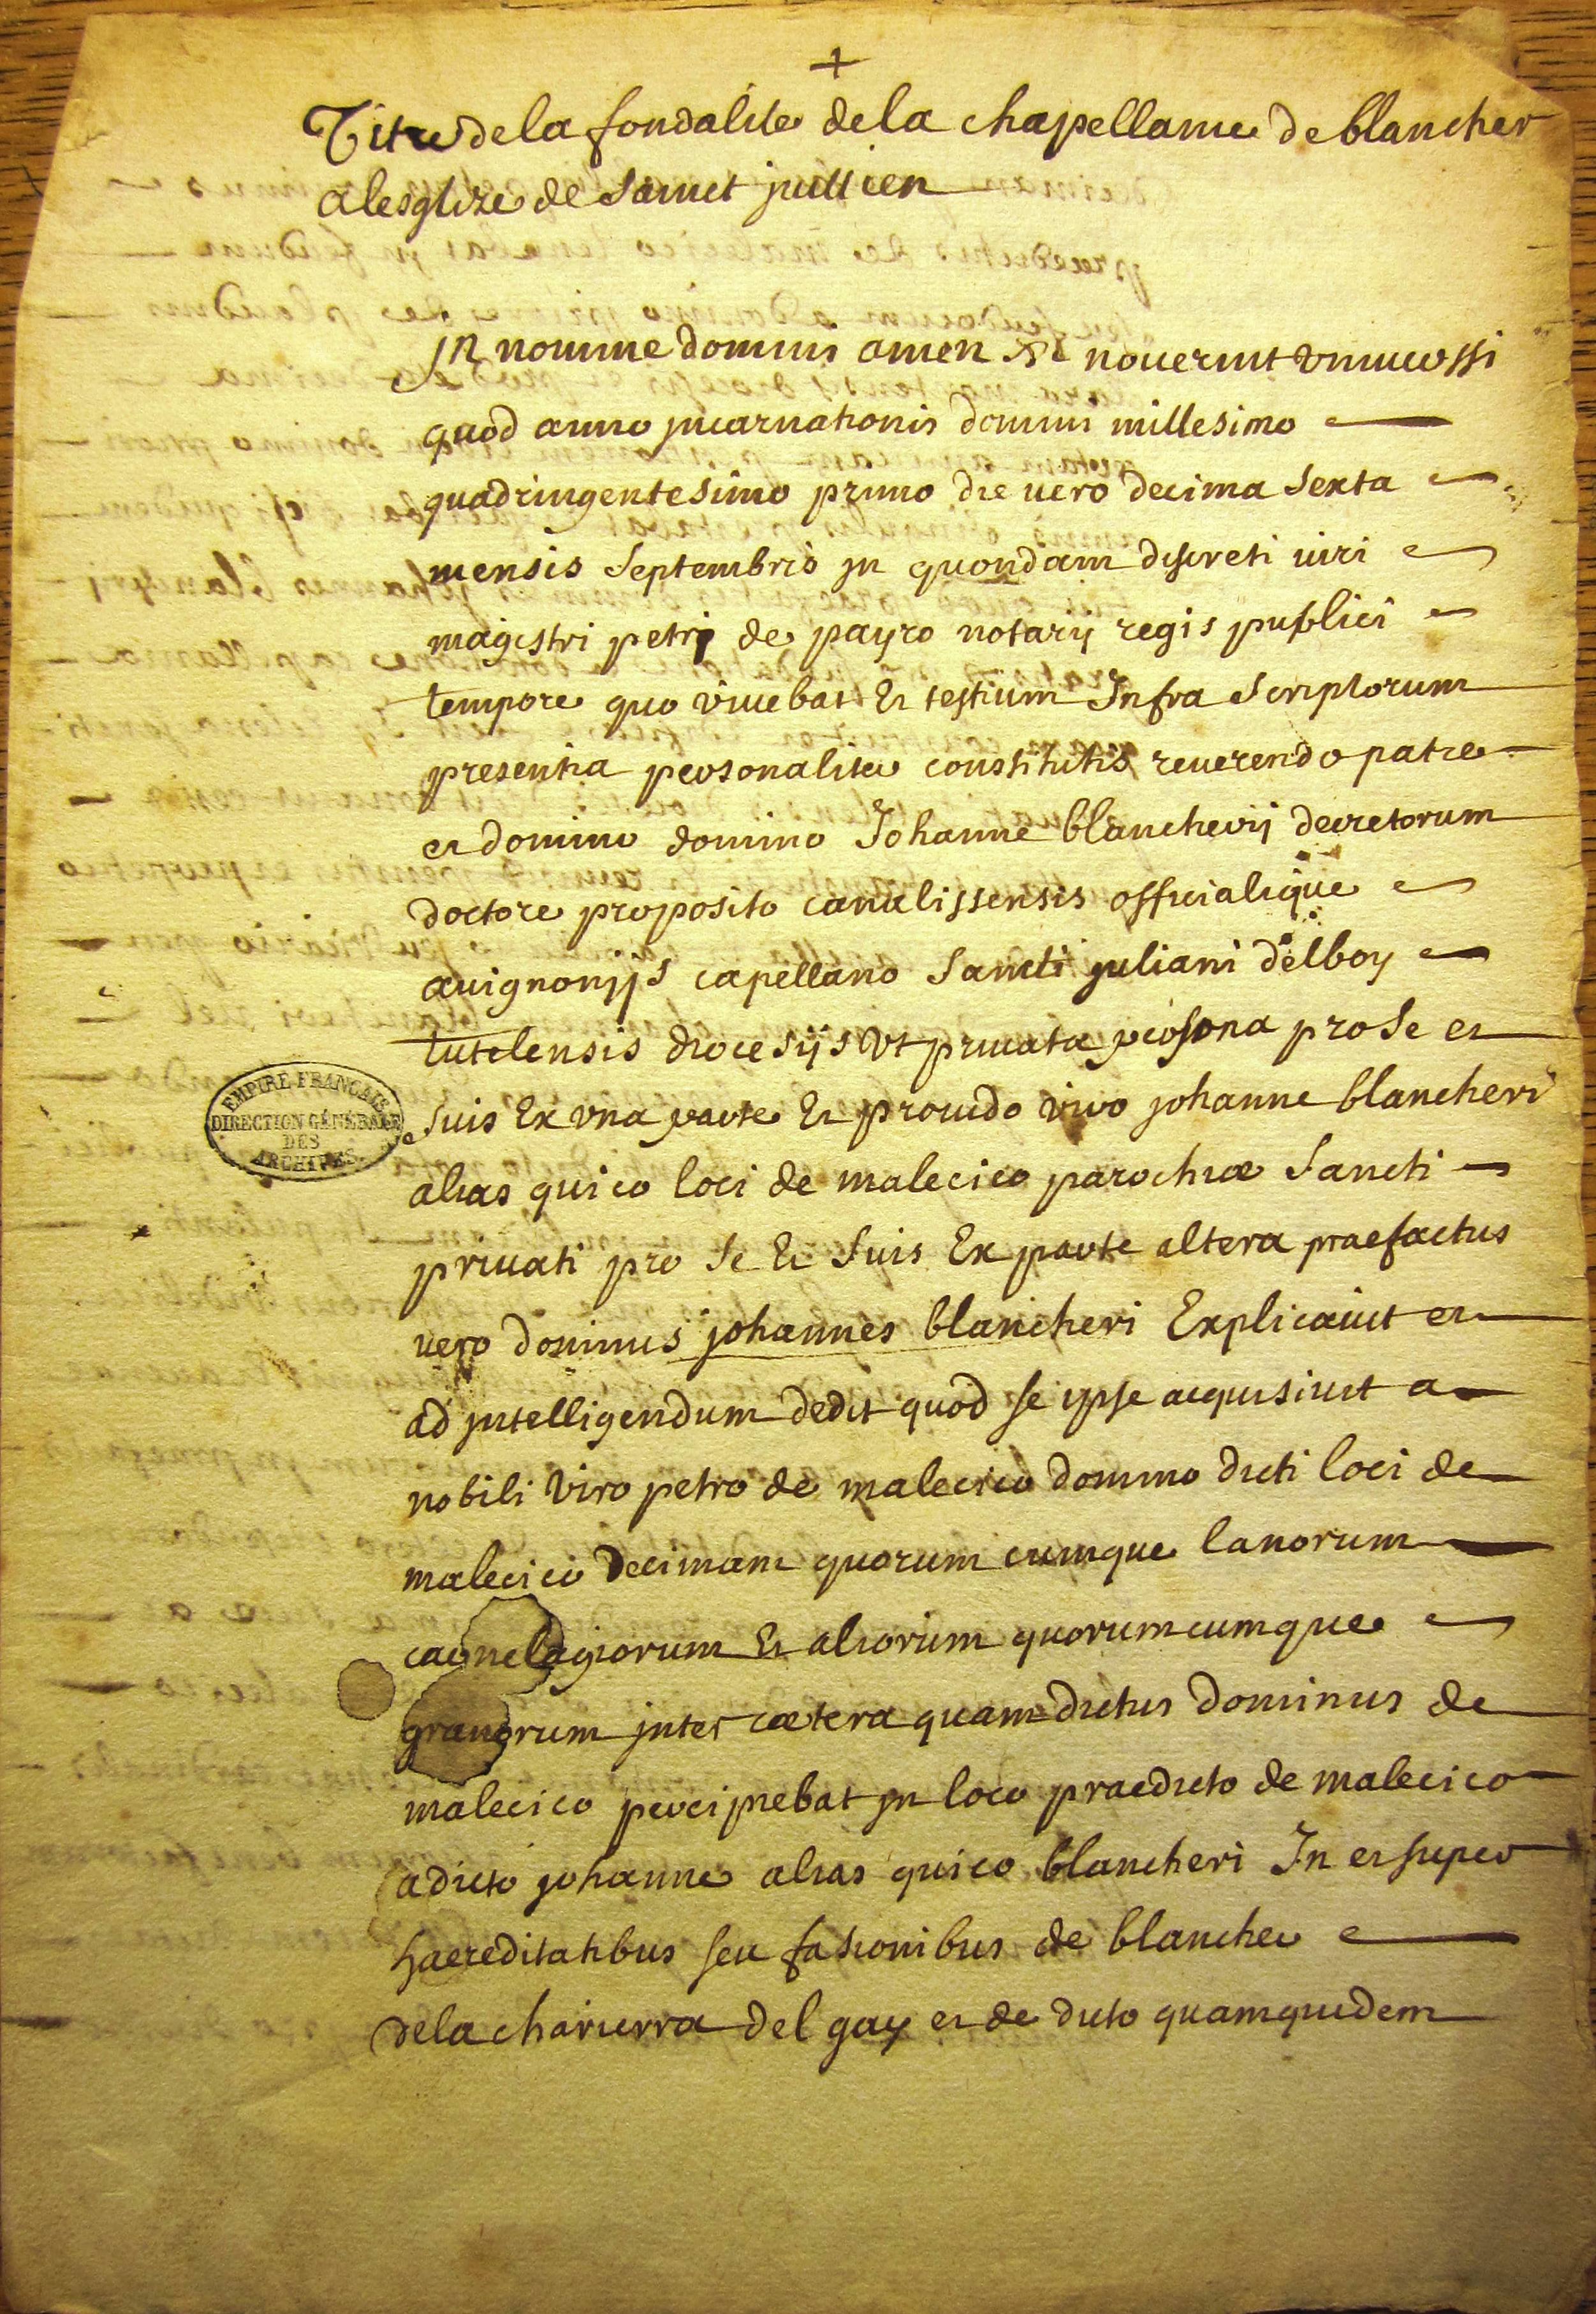 +
Titre de la fondalite de la chapellanie de blancher
a lesglize de sainct jullien
jn nomine domini amen noverint universsi
quod anno jncarnationis domini millesimo
quadringentesimo primo die vero decima sexta
mensis septembris jn quondam discreti viri
magistri petri de payro notarij regis publici
tempore quo vivebat Et testium Infra scriptorum
presentia personaliter constitutis reverendo patre
et domino domino Johanne blancherij decretorum
doctore proposito canalissensis officialique
avignonijs capellano sancti juliani delboy
tutelensis diocesijs Vt privata persona pro se et
suis Ex vna parte Et provido viro johanne blancheri
alias quico loci de malecico parochiae sancti
privati pro se Et suis Ex parte altera praefactus
vero dominus johannes blancheri Explicavit et
ad jntelligendum dedit quod se ipse acquisivit a
nobili viro petro de malecico domino dicti loci de
malecico decimam quorum cumque lanorum
carnelagiorum Et aliorum quorumcumque
granorum jnter caetera quam dictus dominus de
malecico percipiebat jn loco praedicto de malecico
a dicto johanne alias quico blancheri In et super
haereditatibus seu fasionibus de blancher
de la charierra del gay et de dicto quamquidem
EMPIRE FRANÇAIS
DIRECTION GÉNÉRALE
DES
ARCHIVES